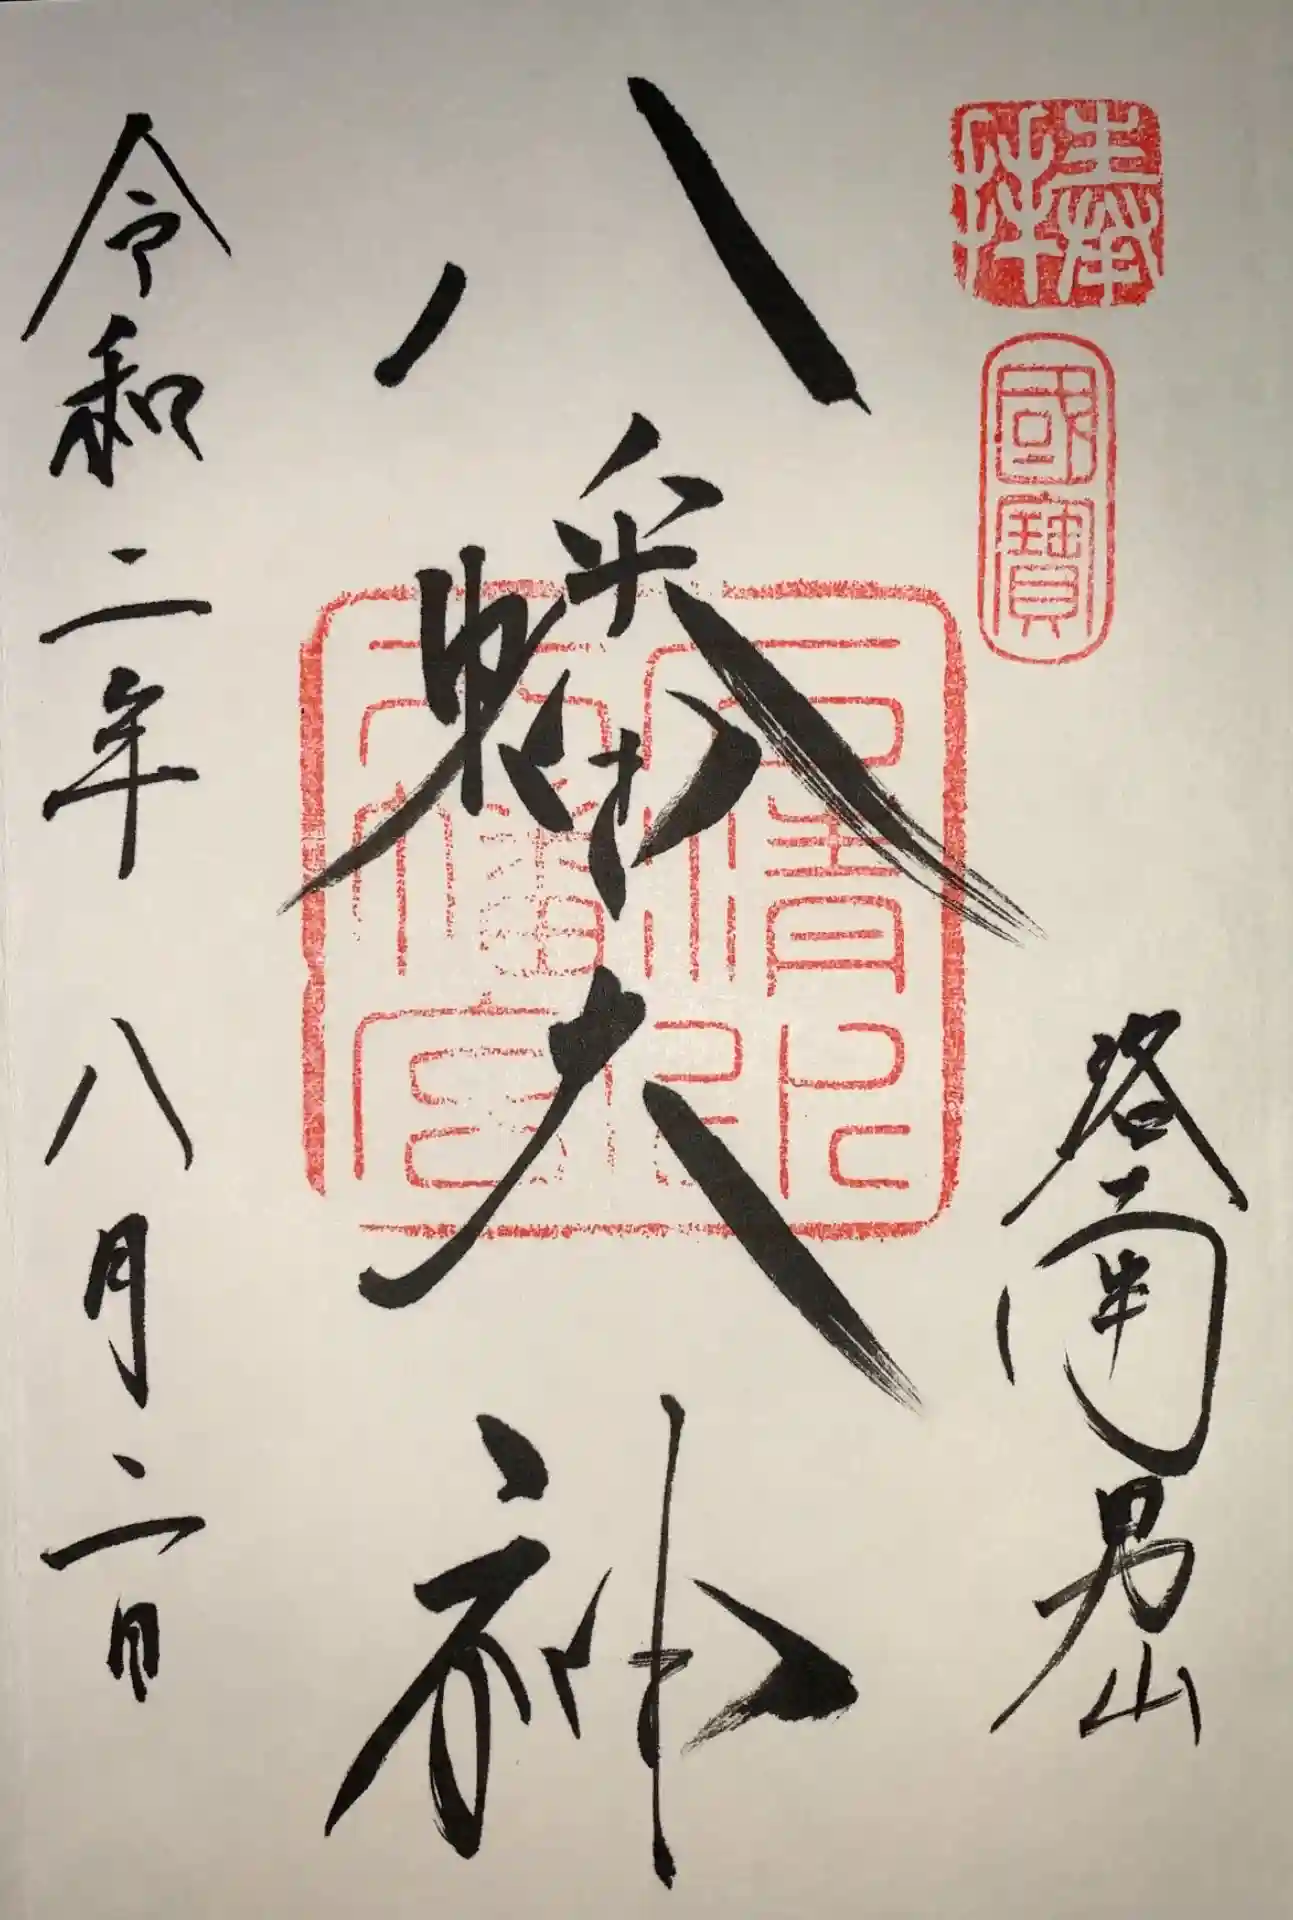 奉拝
國寶
洛南男山
八幡大神
石清水八幡宮印
令和二年八月二日